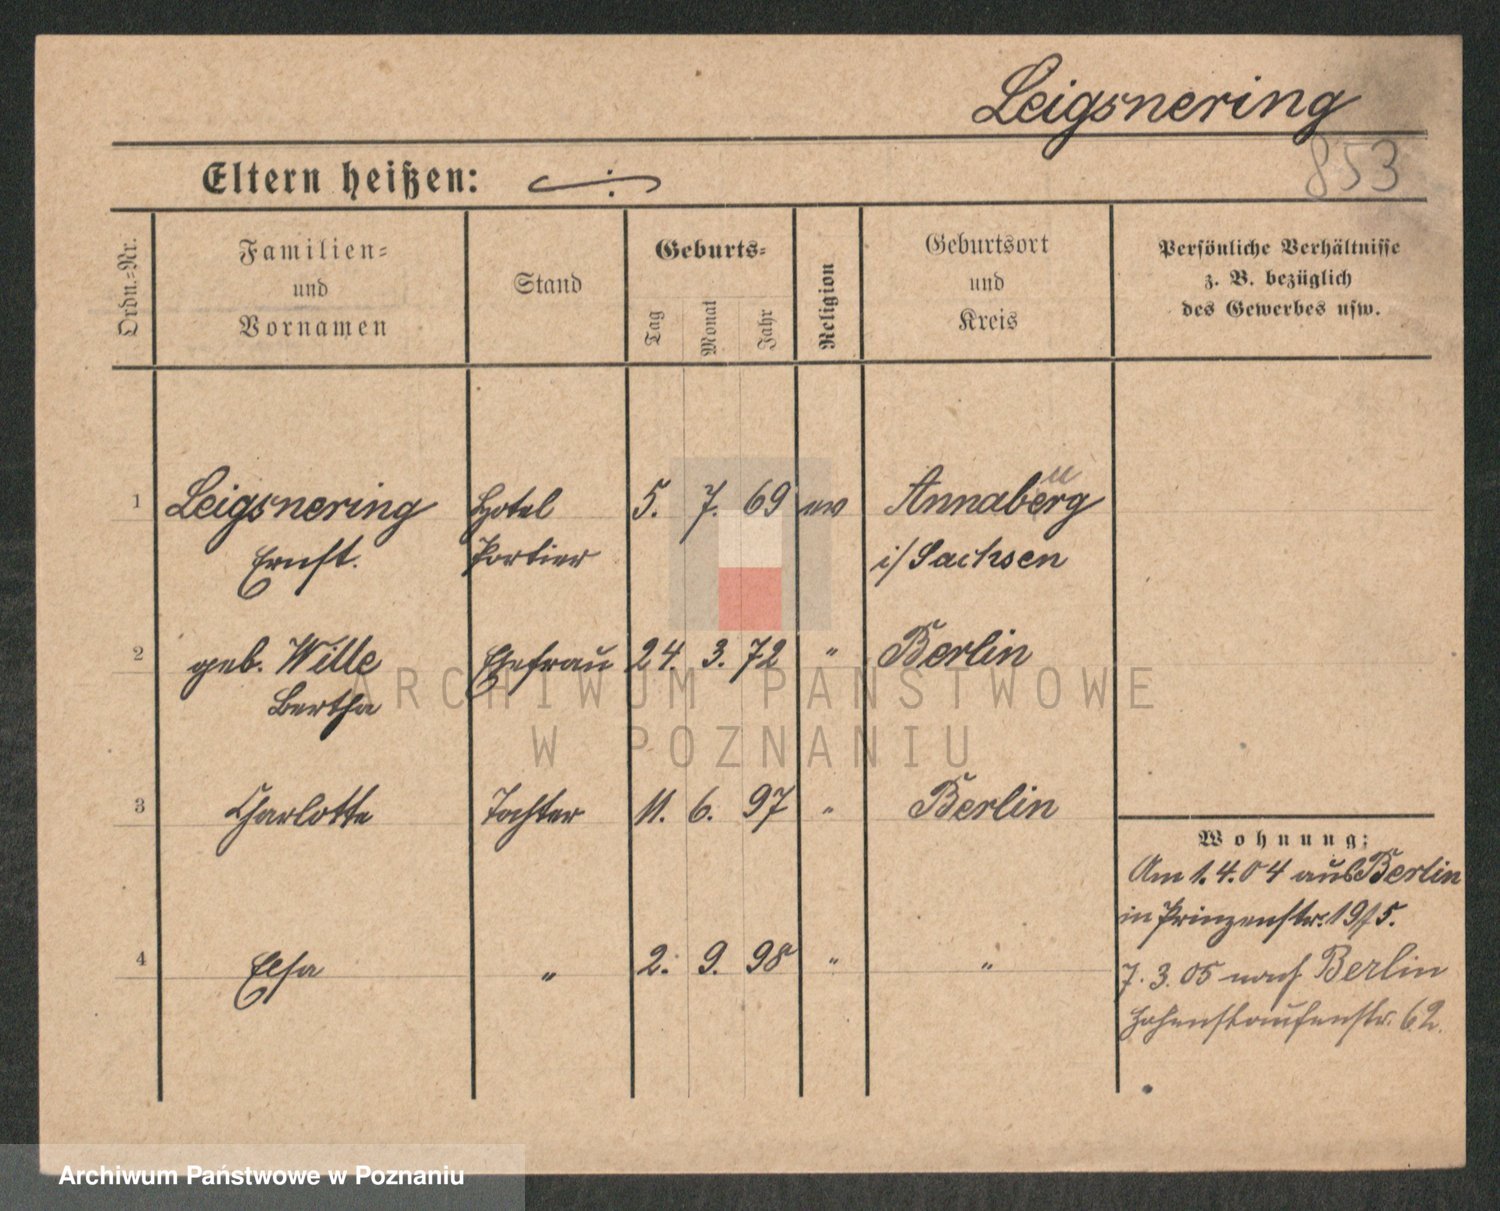 Leigsnering
853
Eltern heißen:
Ordn.=Nr.
Familien=
und
Vornamen
Stand
Geburts=
Tag
Monat
Jahr
Religion
Geburtsort
und
Kreis
Persönliche Verhältnisse
z. B. bezüglich
des Gewerbes usw.
1 Leigsnering Hotel 5. 7. 69 ev Annaberg
Ernst. Portier i/ Sachsen
2 geb. Wille Ehefrau 24. 3. 72 " Berlin
Bertha
3 Charlotte Tochter 11. 6. 97 " Berlin
4 Elsa " 2. 9. 98 " "
Wohnung:
Am 1.4.04 aus Berlin
in Prinzenstr. 19/5.
7.3.05 nach Berlin
Hohenstaufenstr. 62.
ARCHIWUM PAŃSTWOWE
W POZNANIU
Archiwum Państwowe w Poznaniu